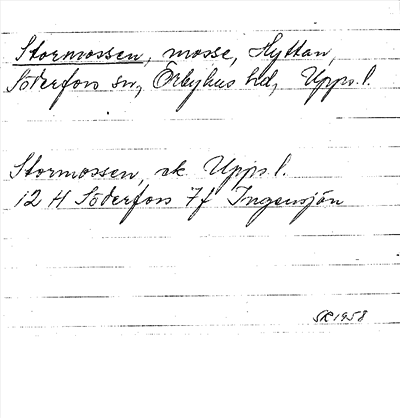 Stormossen, mosse, Hyttan,
Söderfors sn, Örbyhus hd, Upps. l.
Stormossen, ek Upps. l.
12 H Söderfors 7f Ingensjön
SR 1958